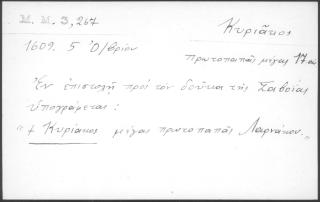 M. M. 3, 267
Κυριᾶκος
1609. 5 Ὀ/βρίου
πρωτοπαπᾶς μέγας 17 αι
Ἐν ἐπιστολῇ πρὸς τὸν δοῦκα τῆς Σαβοίας
ὑπογράφεται:
"+ Κυριάκος μέγας πρωτοπαπᾶς Λαρνάκου."